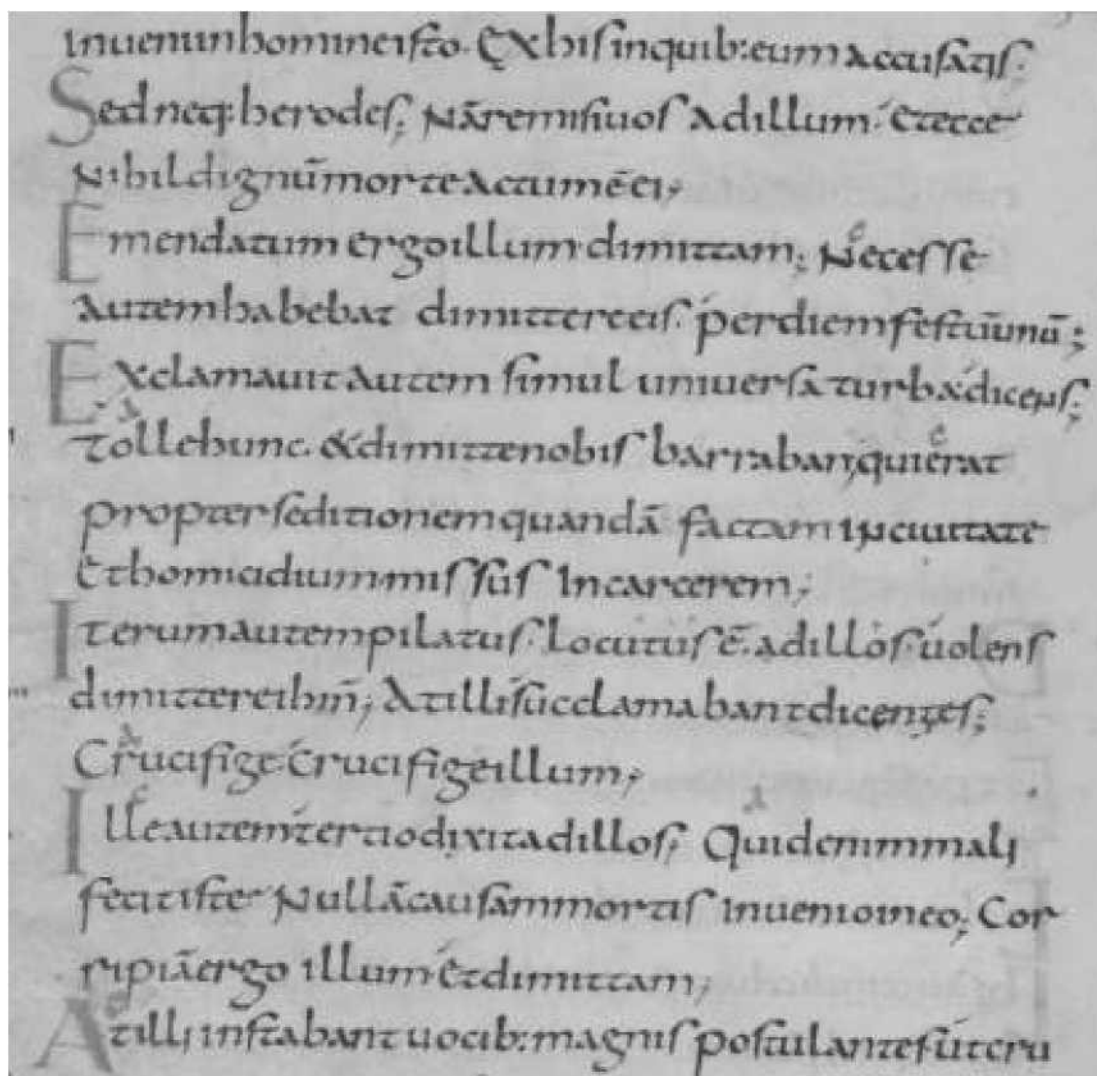 inueni in homine isto. Ex his in quib: eum accusatis;
Sed neq: herodes; Nā remisi uos ad illum. Et ecce
Nihil dignū morte actum ē ei;
Emendatum ergo illum dimittam; Necesse
autem habebat dimittere eis. per diem festū unū;
Exclamauit autem simul uniuersa turba dicens;
tolle hunc. & dimitte nobis barraban, qui erat
propter seditionem quandā factam in ciuitate
Et homicidium missus In carcerem;
Iterum autem pilatus. locutus ē. ad illos. uolens
dimittere ihm̄; At illi succlamabant dicentes;
Crucifige. Crucifige illum;
Ille autem tertio dixit ad illos; Quid enim mali
fecit iste Nullā causam mortis Inuenio in eo; Cor
ripiā ergo illum Et dimittam;
At illi instabant uocib: magnis postulantes ut cru